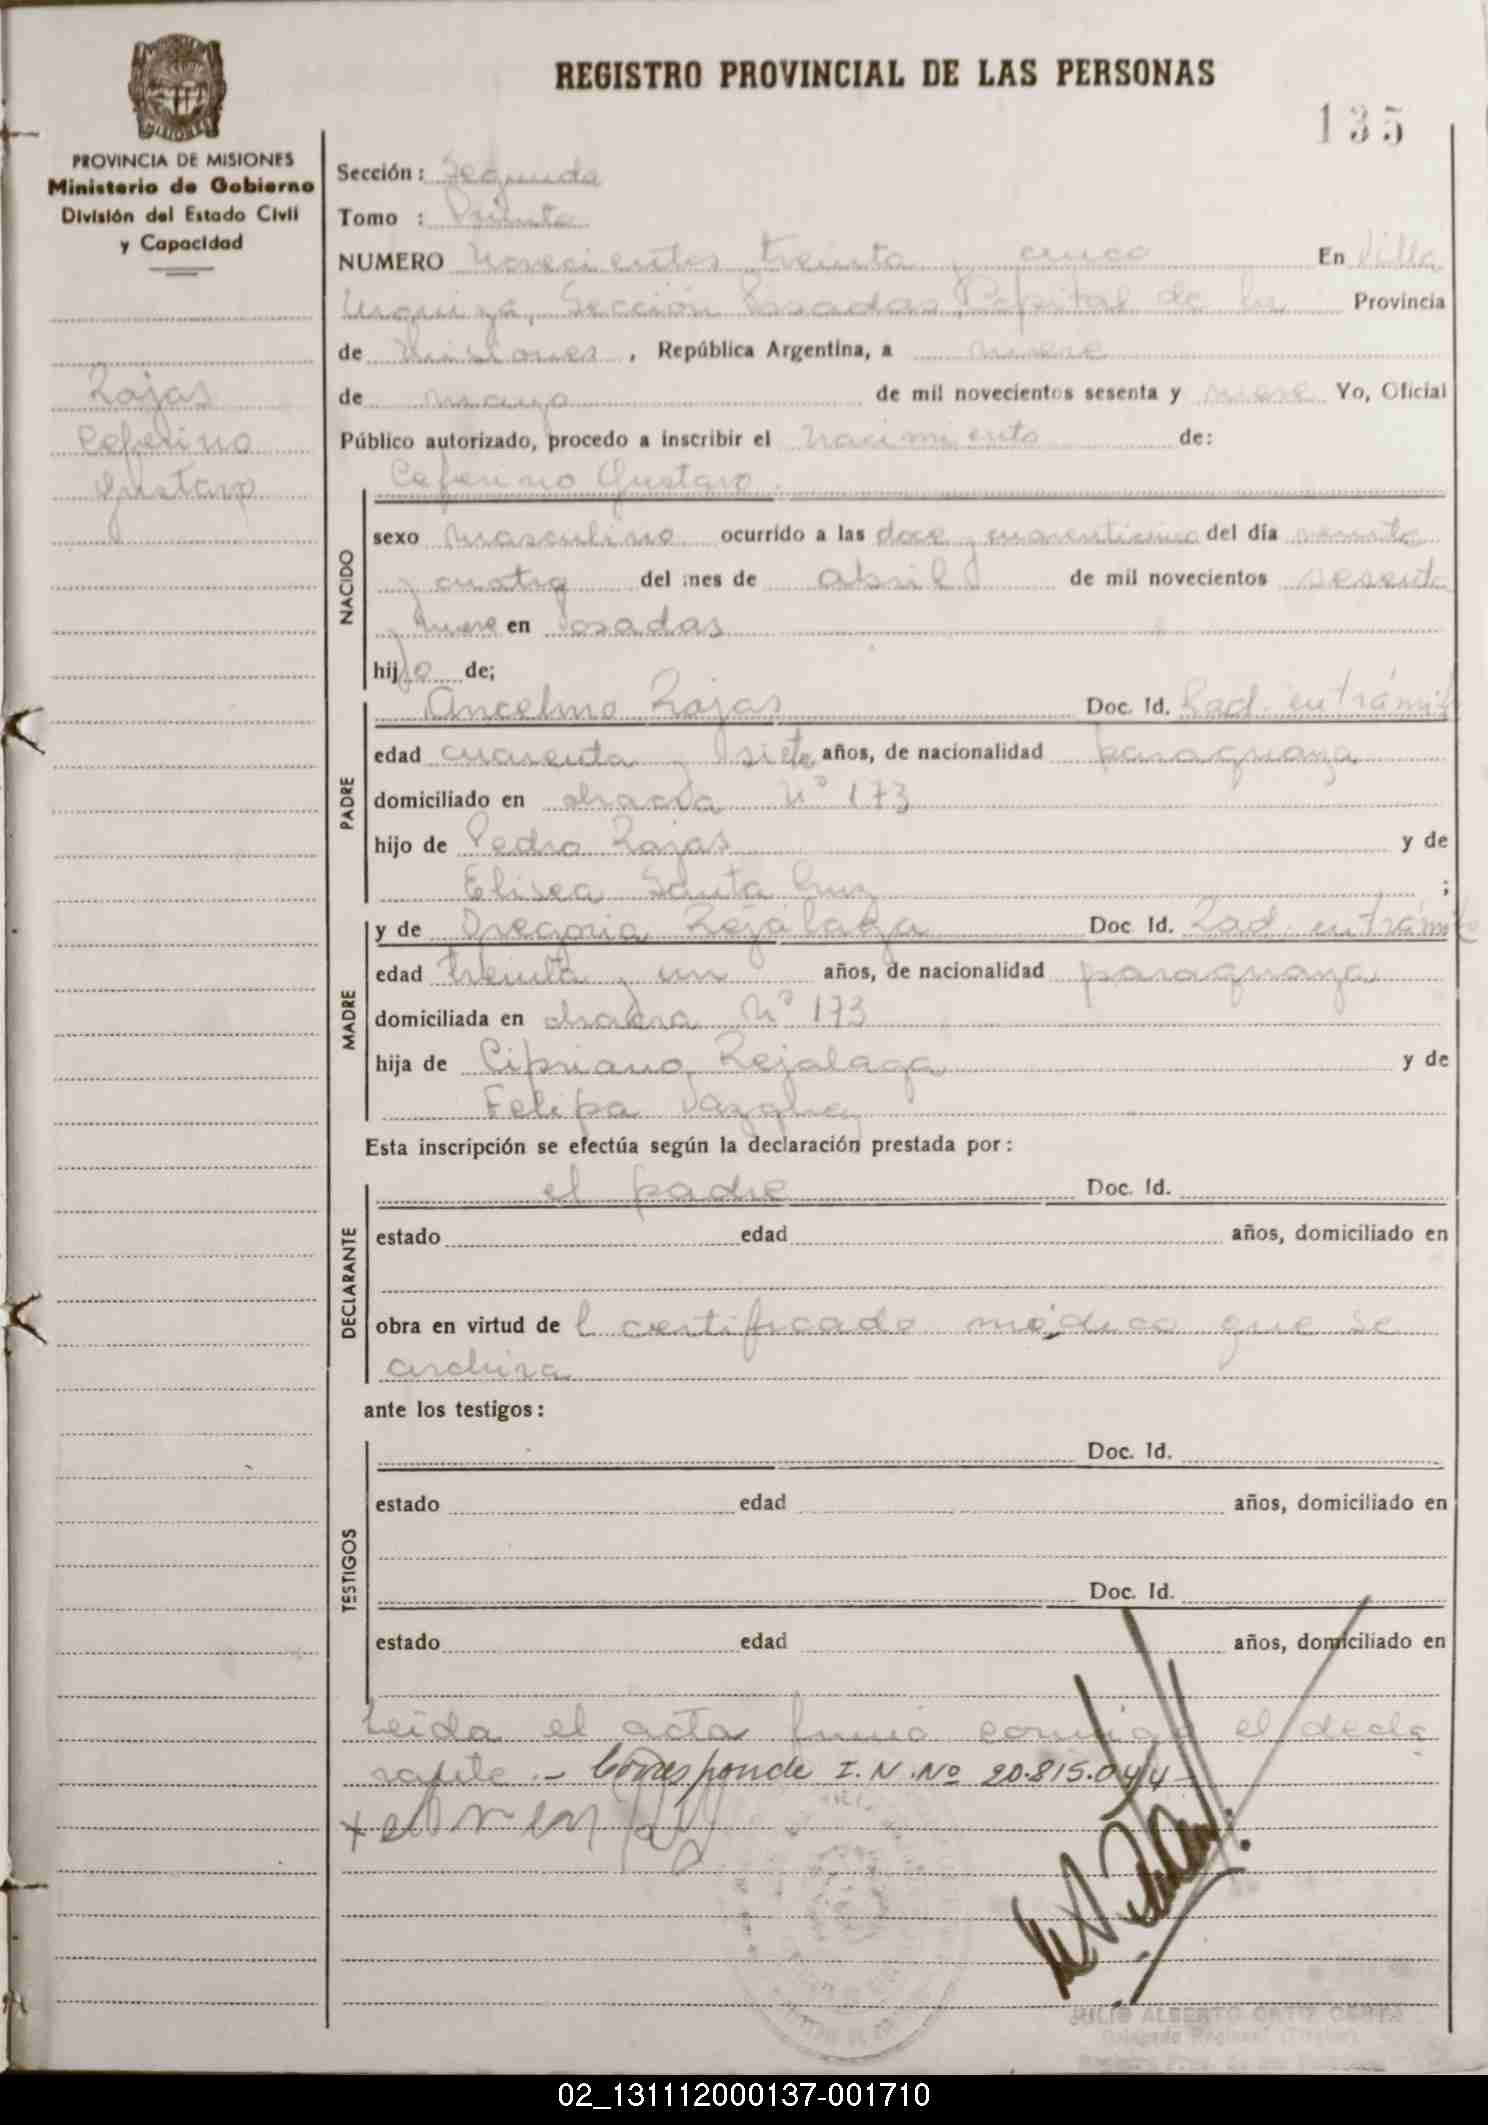 REGISTRO PROVINCIAL DE LAS PERSONAS
135
PROVINCIA DE MISIONES
Ministerio de Gobierno
División del Estado Civil
y Capacidad
Rojas
Ceferino
Gustavo
Sección: Segunda
Tomo :
NUMERO Novecientos treinta y cinco En Villa
Urquiza, Sección Posadas, Capital de la Provincia
de Misiones, República Argentina, a nueve
de mayo de mil novecientos sesenta y nueve Yo, Oficial
Público autorizado, procedo a inscribir el nacimiento de:
Ceferino Gustavo
NACIDO
sexo masculino ocurrido a las doce y cuarenticinco del día veinte
y cuatro del mes de abril de mil novecientos sesenta
y nueve en Posadas
hijo de;
PADRE
Ancelmo Rojas Doc. Id. Rad. en trámite
edad cuarenta y siete años, de nacionalidad paraguaya
domiciliado en chacra Nº 173
hijo de Pedro Rojas y de
Elisea Santa Cruz ;
MADRE
y de Gregoria Rejálaga Doc Id. Rad. en trámite
edad treinta y un años, de nacionalidad paraguaya
domiciliada en chacra Nº 173
hija de Cipriano Rejalaga y de
Felipa
Esta inscripción se efectúa según la declaración prestada por:
DECLARANTE
el padre Doc. Id.
estado edad años, domiciliado en
obra en virtud de l certificado médico que se
archiva
ante los testigos:
TESTIGOS
Doc. Id.
estado edad años, domiciliado en
Doc. Id.
estado edad años, domiciliado en
Leida el acta firmó conmigo el decla
rante.- Corresponde I.N.Nº 20.815.044-
JULIO ALBERTO ORTIZ
Delegado Regional (Titular)
02_131112000137-001710